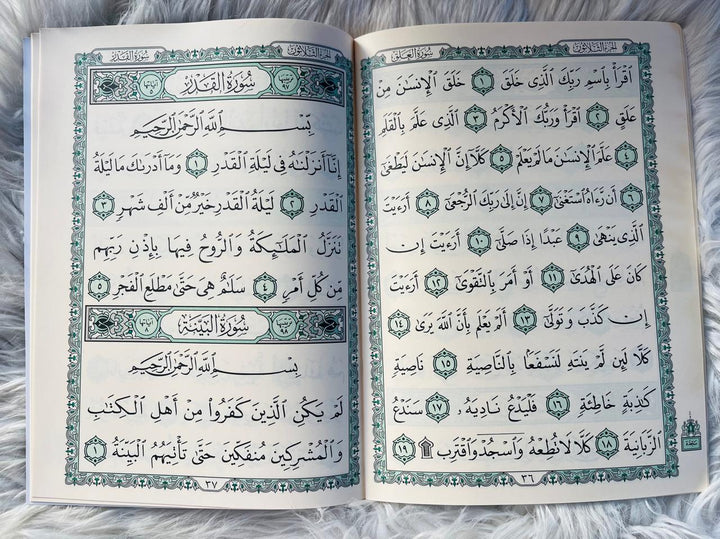 الجزء الثلاثون
سورة العلق
ٱقۡرَأۡ بِٱسۡمِ رَبِّكَ ٱلَّذِى خَلَقَ ١ خَلَقَ ٱلۡإِنسَٰنَ مِنۡ
عَلَقٍ ٢ ٱقۡرَأۡ وَرَبُّكَ ٱلۡأَكۡرَمُ ٣ ٱلَّذِى عَلَّمَ بِٱلۡقَلَمِ
٤ عَلَّمَ ٱلۡإِنسَٰنَ مَا لَمۡ يَعۡلَمۡ ٥ كَلَّآ إِنَّ ٱلۡإِنسَٰنَ لَيَطۡغَىٰٓ
٦ أَن رَّءَاهُ ٱسۡتَغۡنَىٰٓ ٧ إِنَّ إِلَىٰ رَبِّكَ ٱلرُّجۡعَىٰٓ ٨ أَرَءَيۡتَ
ٱلَّذِى يَنۡهَىٰ ٩ عَبۡدًا إِذَا صَلَّىٰٓ ١٠ أَرَءَيۡتَ إِن
كَانَ عَلَى ٱلۡهُدَىٰٓ ١١ أَوۡ أَمَرَ بِٱلتَّقۡوَىٰٓ ١٢ أَرَءَيۡتَ
إِن كَذَّبَ وَتَوَلَّىٰٓ ١٣ أَلَمۡ يَعۡلَم بِأَنَّ ٱللَّهَ يَرَىٰ ١٤
كَلَّا لَئِن لَّمۡ يَنتَهِ لَنَسۡفَعَۢا بِٱلنَّاصِيَةِ ١٥ نَاصِيَةٍ
كَٰذِبَةٍ خَاطِئَةٍ ١٦ فَلۡيَدۡعُ نَادِيَهُۥ ١٧ سَنَدۡعُ
ٱلزَّبَانِيَةَ ١٨ كَلَّا لَا تُطِعۡهُ وَٱسۡجُدۡ وَٱقۡتَرِب ۩ ١٩
٣٦
الجزء الثلاثون
سورة القدر
سُورَةُ القَدْرِ
بِسۡمِ ٱللَّهِ ٱلرَّحۡمَٰنِ ٱلرَّحِيمِ
إِنَّآ أَنزَلۡنَٰهُ فِى لَيۡلَةِ ٱلۡقَدۡرِ ١ وَمَآ أَدۡرَىٰكَ مَا لَيۡلَةُ
ٱلۡقَدۡرِ ٢ لَيۡلَةُ ٱلۡقَدۡرِ خَيۡرٌ مِّنۡ أَلۡفِ شَهۡرٍ ٣
تَنَزَّلُ ٱلۡمَلَٰٓئِكَةُ وَٱلرُّوحُ فِيهَا بِإِذۡنِ رَبِّهِم
مِّن كُلِّ أَمۡرٍ ٤ سَلَٰمٌ هِىَ حَتَّىٰ مَطۡلَعِ ٱلۡفَجۡرِ ٥
سُورَةُ البَيِّنَةِ
بِسۡمِ ٱللَّهِ ٱلرَّحۡمَٰنِ ٱلرَّحِيمِ
لَمۡ يَكُنِ ٱلَّذِينَ كَفَرُواْ مِنۡ أَهۡلِ ٱلۡكِتَٰبِ
وَٱلۡمُشۡرِكِينَ مُنفَكِّينَ حَتَّىٰ تَأۡتِيَهُمُ ٱلۡبَيِّنَةُ ١
٣٧